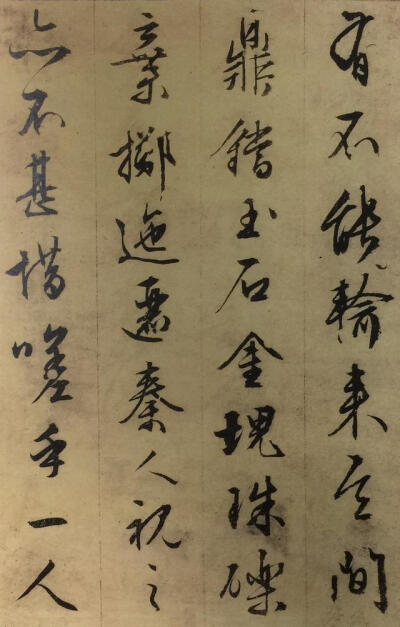 有不能輸来其間
鼎鐺玉石金塊珠礫
棄擲迤邐秦人視之
亦不甚惜嗟乎一人